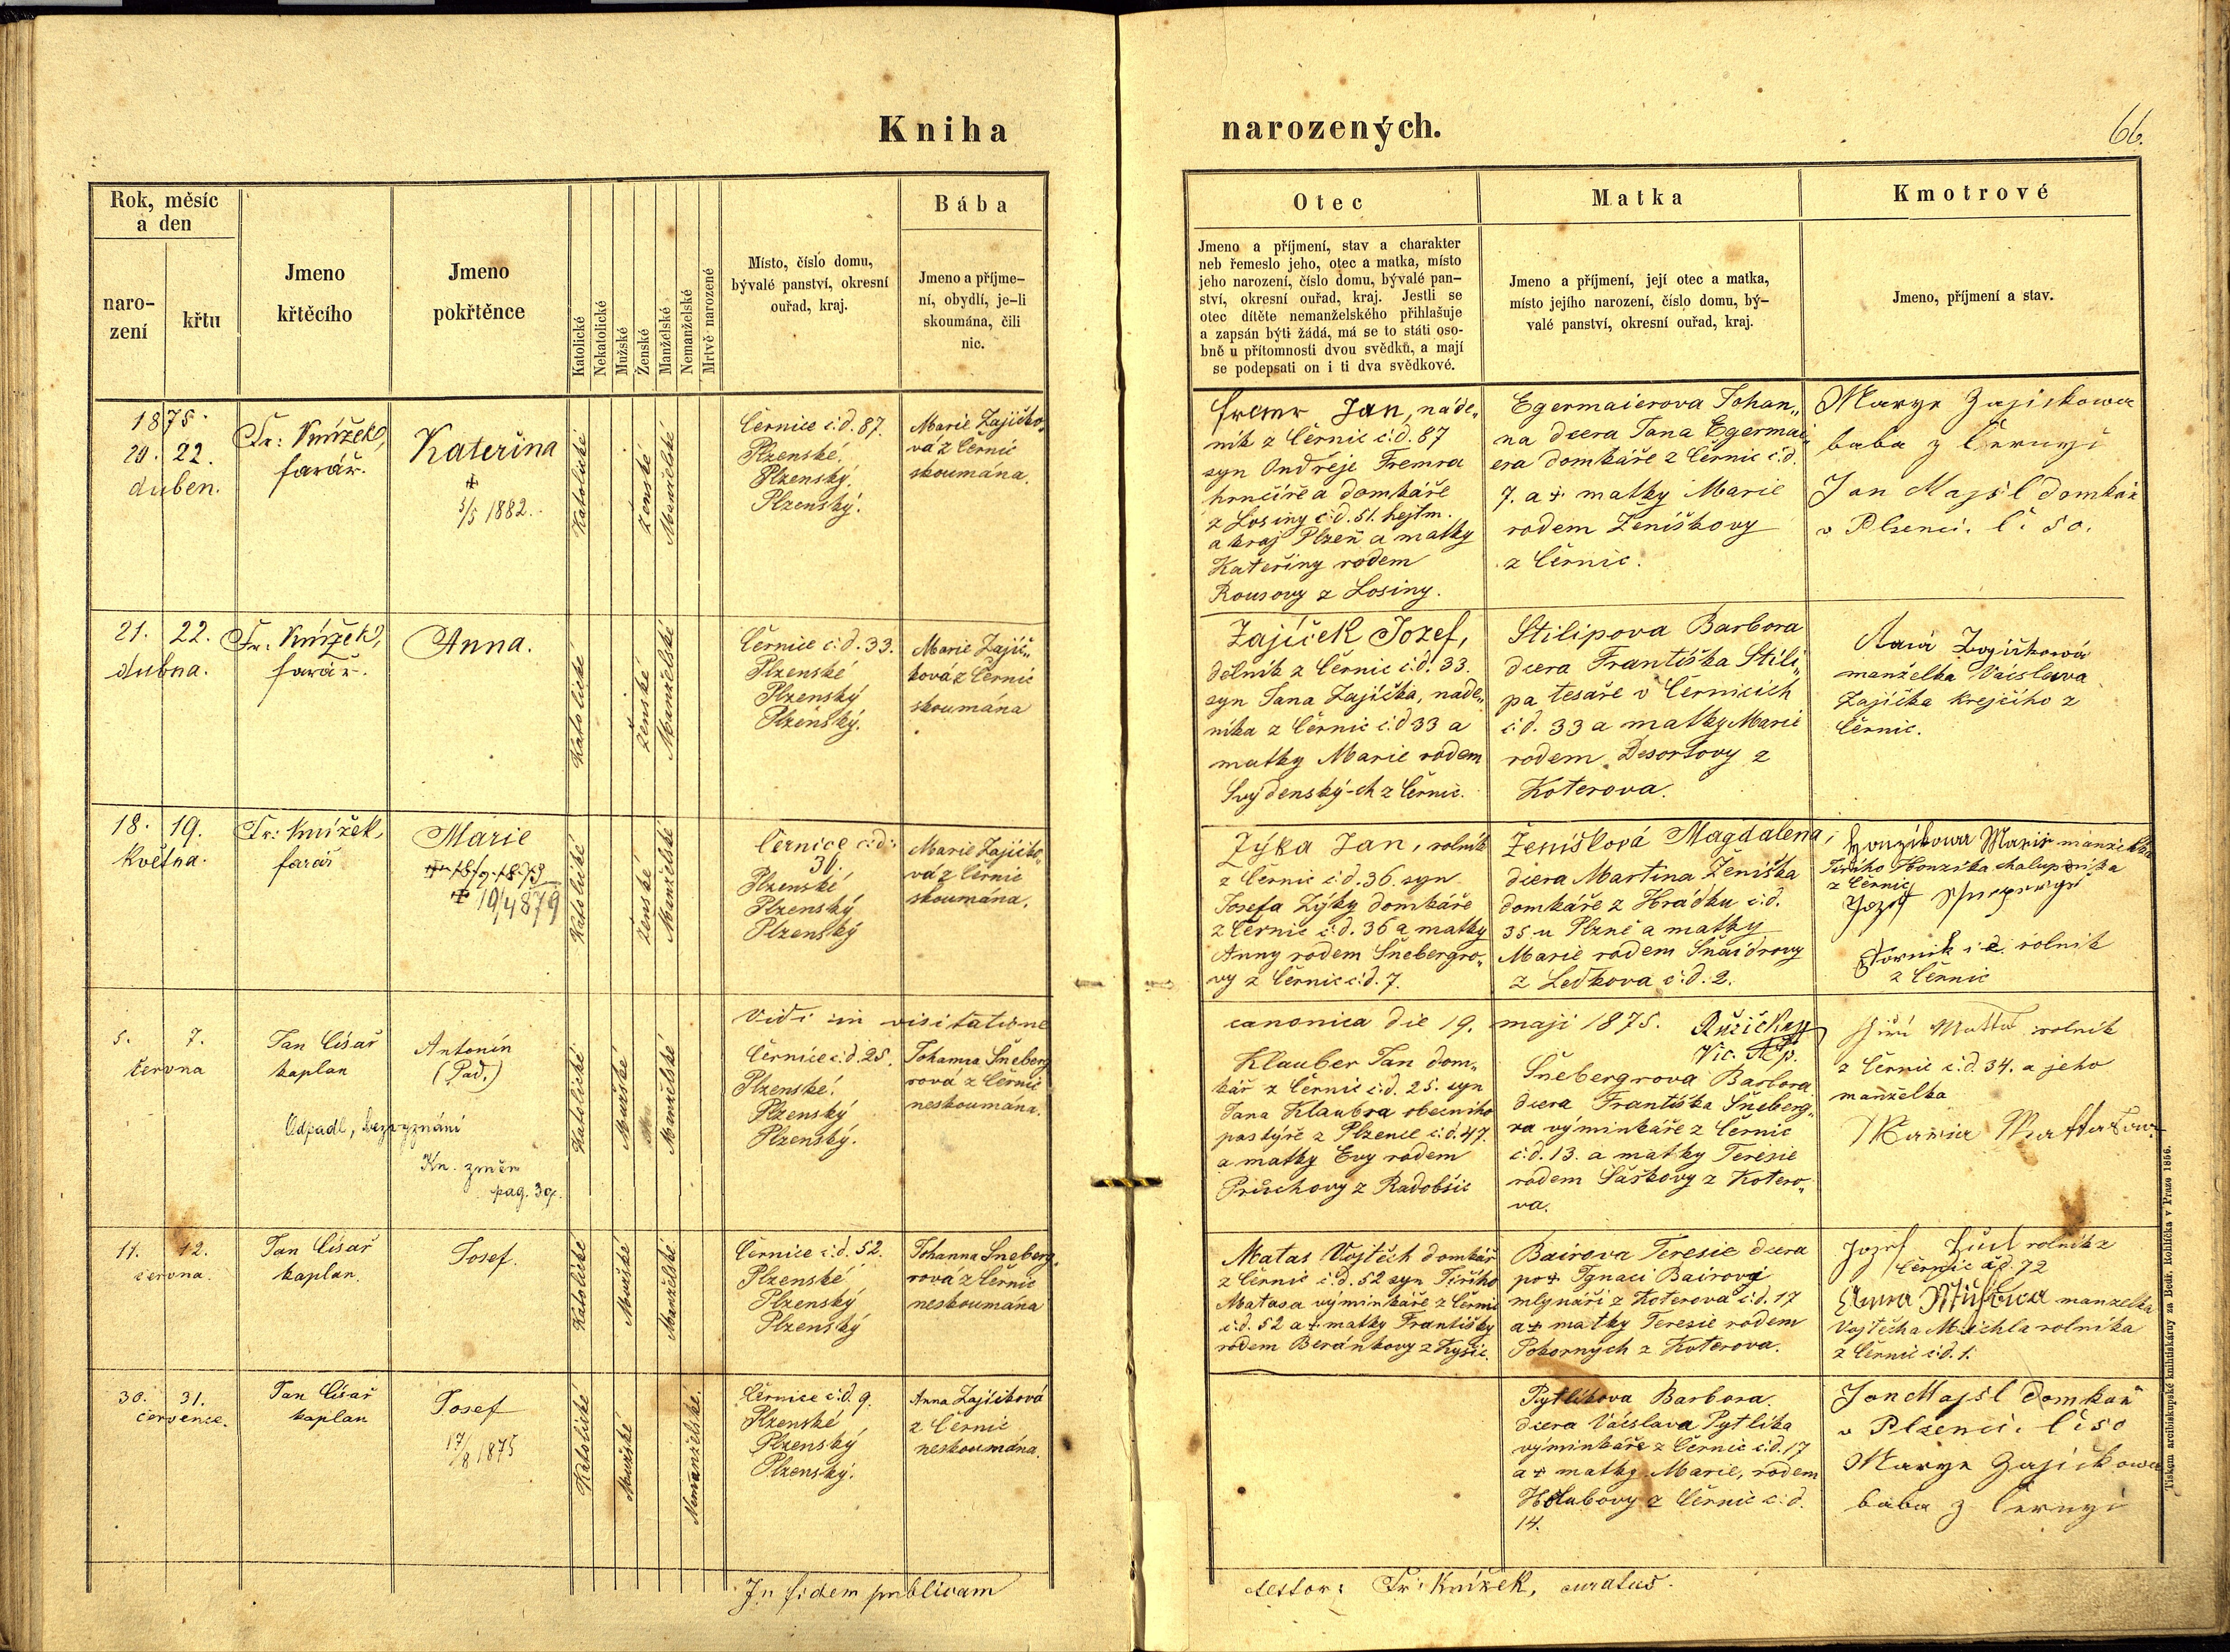 Kniha
narozených.
66.
Rok, měsíc
a den
naro-
zení
křtu
Jmeno
křtěcího
Jmeno
pokřtěnce
Katolické
Nekatolické
Mužské
Ženské
Manželské
Nemanželské
Mrtvě narozené
Místo, číslo domu,
bývalé panství, okresní
ouřad, kraj.
Bába
Jmeno a příjme-
ní, obydlí, je-li
skoumána, čili
nic.
Otec
Jmeno a příjmení, stav a charakter
neb řemeslo jeho, otec a matka, místo
jeho narození, číslo domu, bývalé pan-
ství, okresní ouřad, kraj. Jestli se
otec dítěte nemanželského přihlašuje
a zapsán býti žádá, má se to státi oso-
bně u přítomnosti dvou svědků, a mají
se podepsati on i ti dva svědkové.
Matka
Jmeno a příjmení, její otec a matka,
místo jejího narození, číslo domu, bý-
valé panství, okresní ouřad, kraj.
Kmotrové
Jmeno, příjmení a stav.
1875.
20. 22.
duben.
Fr: Knížek,
farář.
Kateřina
+
5/5 1882.
Katolické
Ženské
Manželské
Černice č:d. 87.
Plzenské.
Plzenský.
Plzenský.
Marie Zajíčko„
vá z Černic
skoumána.
Fremr Jan, náde„
ník z Černic č:d. 87
syn Ondřeje Fremra
hrnčíře a domkáře
z Losiny č:d. 51. hejtm.
a kraj Plzeň a matky
Kateřiny rodem
Rousovy z Losiny.
Egermaierova Johan„
na dcera Jana Egermai„
era domkáře z Černic č:d.
7. a + matky Marie
rodem Ženíškovy
z Černic.
Marye Zajiskowa
baba z Černyi
Jan Majsl domkář
v Plzenci. č 50.
21. 22.
dubna.
Fr: Knížek,
farář.
Anna.
Katolické
ženské
Manželské
Černice č:d. 33.
Plzenské
Plzenský
Plzenský.
Marie Zajíč„
ková z Černic
skoumána
Zajíček Jozef,
dělník z Černic č:d. 33.
syn Jana Zajíčka, náde„
níka z Černic č:d 33 a
matky Marie rodem
Svýdenský-ch z Černic.
Stilipova Barbora
dcera Františka Stili„
pa tesaře v Černicích
č:d. 33 a matky Marie
rodem Desortovy z
Koterova.
manželka Václava
Zajíčka krejčího z
Černic.
18. 19.
Května.
Fr: Knížek,
farář
Marie
+ 19/4 879
Katolické
ženské
Manželské
Černice č:d:
36.
Plzenské
Plzenský
Plzenský
Marie Zajíčko„
vá z Černic
skoumána.
Zýka Jan, rolník
z Černic č:d. 36. syn
Josefa Zýky domkáře
z Černic č:d. 36 a matky
Anny rodem Šnebergro„
vy z Černic č:d. 7.
Ženíšková Magdalena,
dcera Martina Ženíška
domkáře z Hrádku č:d.
35 u Plzně a matky
Marie rodem Šnaidrovy
z Ledkova č:d. 2.
Honzikowa Marie manželka
Jiřího Honzíka chalupníka
z Černic
Jozef
rolník
z Černic
Vidi in visitatione
canonica die 19. maji 1875. Růžička
Vic. Ap.
5. 7.
června
Jan Císař
kaplan
Antonín
(Pad.)
Odpadl, bezvyznání
Kn. změn
pag. 39.
Katolické
Mužské
Manželské
Černice č:d. 25.
Plzenské.
Plzenský
Plzenský.
Johanna Šneberg
rová z Černic
neskoumána.
Klauber Jan dom„
kář z Černic č:d. 25. syn
Jana Klaubra obecního
pastýře z Plzence č:d. 47.
a matky Evy rodem
Průchovy z Radobšic
Šnebergrova Barbora
dcera Františka Šneberg„
ra výminkáře z Černic
č:d. 13. a matky Teresie
rodem Šaškovy z Kotero„
va.
rolník
z Černic č:d. 34. a jeho
manželka
Maria
11. 12.
června.
Jan Císař
kaplan.
Josef.
Katolické
Mužské
Manželské
Černice č:d. 52.
Plzenské
Plzenský
Plzenský
Johanna Šneberg„
rová z Černic
neskoumána
Matas Vojtěch domkář
z Černic č:d. 52 syn Jiřího
Matasa výminkáře z Černic
č:d. 52 a + matky Františky
rodem Beránkovy z Kyšic.
Bairova Teresie dcera
po + Ignaci Bairovi
mlynáři z Koterova č:d. 17
a + matky Teresie rodem
Pokorných z Koterova.
Jozef rolník z
Černic č:d. 72
Anna manželka
Vojtěcha Michla rolníka
z Černic č:d. 1.
30. 31.
července.
Jan Císař
kaplan
Josef
17/8 1875
Katolické
Mužské
Nemanželské.
Černice č:d. 9.
Plzenské
Plzenský
Plzenský.
Anna Zajíčková
z Černic
neskoumána.
Pytlíkova Barbora.
dcera Václava Pytlíka
výminkáře z Černic č:d. 17
a + matky Marie, rodem
Holubovy z Černic č:d.
14.
Jan Majsl domkář
v Plzenci. č 50
Marye Zajičkowa
baba z Černyi
In fidem publicam
testor: Fr: Knížek, curatus.
Tiskem arcibiskupské knihtiskárny za Bedř. Rohlíčka v Praze 1866.